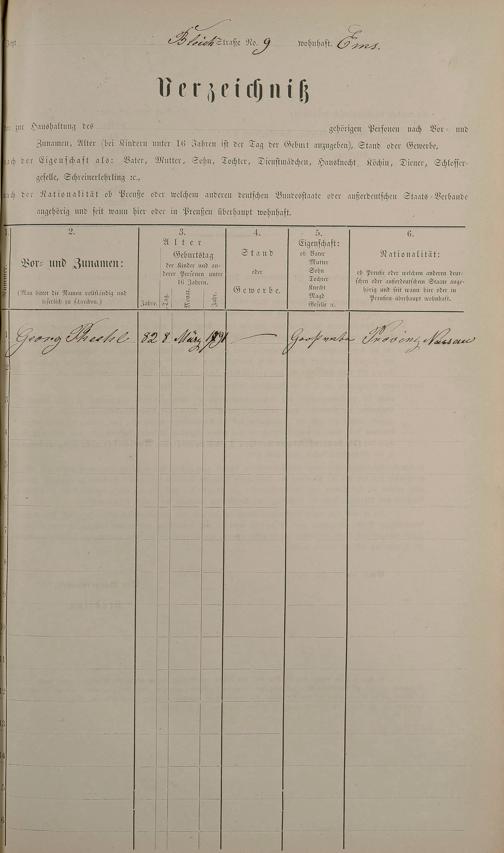 Bleich Straße No. 9 wohnhaft. Ems.
Verzeichniß
zur Haushaltung des gehörigen Personen nach Vor- und
Zunamen, Alter (bei Kindern unter 16 Jahren ist der Tag der Geburt anzugeben), Stand oder Gewerbe,
nach der Eigenschaft als: Vater, Mutter, Sohn, Tochter, Dienstmädchen, Hausknecht, Köchin, Diener, Schlosser-
geselle, Schreinerlehrling ꝛc.,
nach der Nationalität ob Preuße oder welchem anderen deutschen Bundesstaate oder außerdeutschen Staats-Verbande
angehörig und seit wann hier oder in Preußen überhaupt wohnhaft.
1. 2. 3. 4. 5. 6.
Nummer.
Vor- und Zunamen:
(Man bittet die Namen vollständig und
leserlich zu schreiben.)
Alter
Geburtstag
der Kinder und an-
derer Personen unter
16 Jahren.
Jahre. Tag. Monat. Jahr.
Stand
oder
Gewerbe.
Eigenschaft:
ob Vater
Mutter
Sohn
Tochter
Knecht
Magd
Geselle ꝛc.
Nationalität:
ob Preuße oder welchem anderen deut-
schen oder außerdeutschen Staate ange-
hörig und seit wann hier oder in
Preußen überhaupt wohnhaft.
Georg 82 8. März — Großvater Provinz Nassau